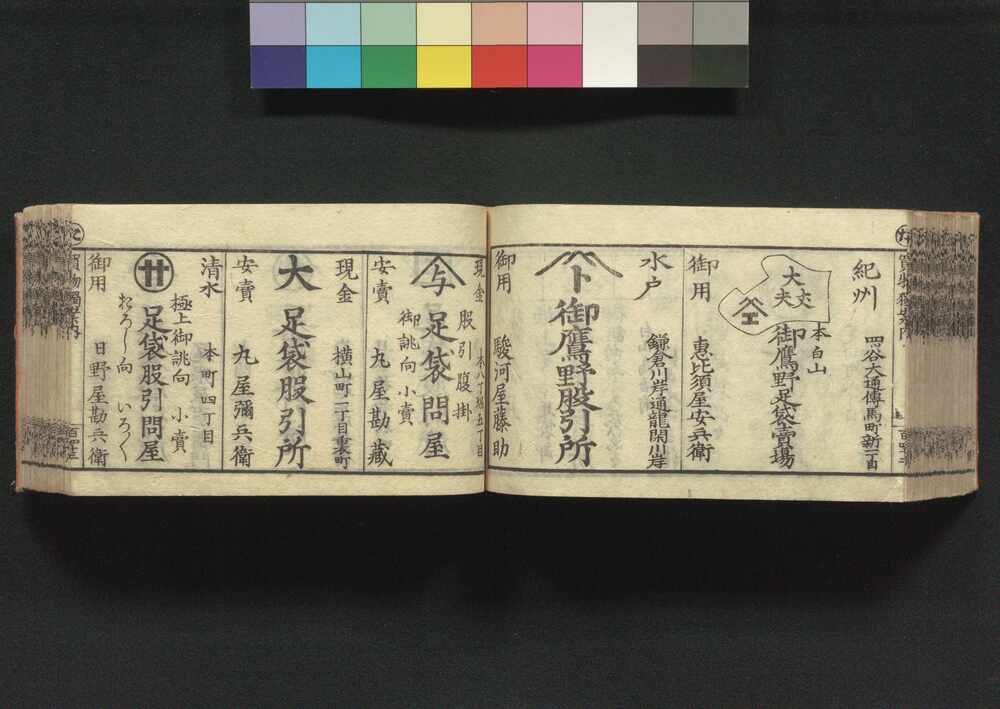 紀州
四谷大通傳馬町新一丁目
大丈夫
本白山
御鷹野足袋賣場
御用
惠比須屋安兵衛
水戸
鎌倉川岸通龍閑川岸
卜
御鷹野股引所
御用
駿河屋藤助
現金
本八丁堀五丁目
股引腹掛
与
足袋問屋
御誂向小賣
安賣
丸屋勘藏
現金
横山町二丁目裏表町
大
足袋股引所
安賣
丸屋彌兵衛
清水
本町四丁目
極上御誂向小賣
足袋股引問屋
おろし向いろ〱
御用
日野屋勘兵衛